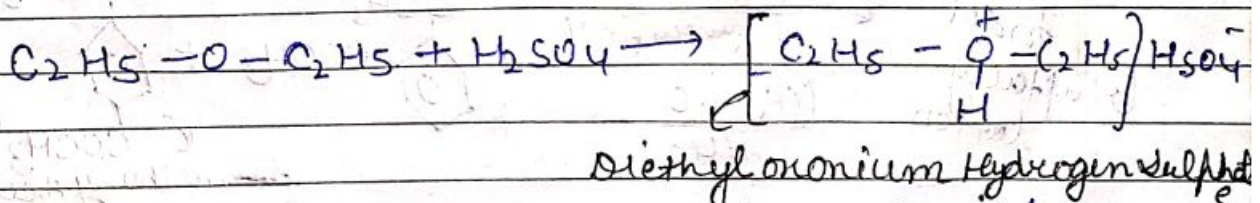 C2H5 - O - C2H5 + H2SO4 → [C2H5 - O⁺ - C2H5] HSO4⁻
H
Diethyl oxonium Hydrogen Sulphate